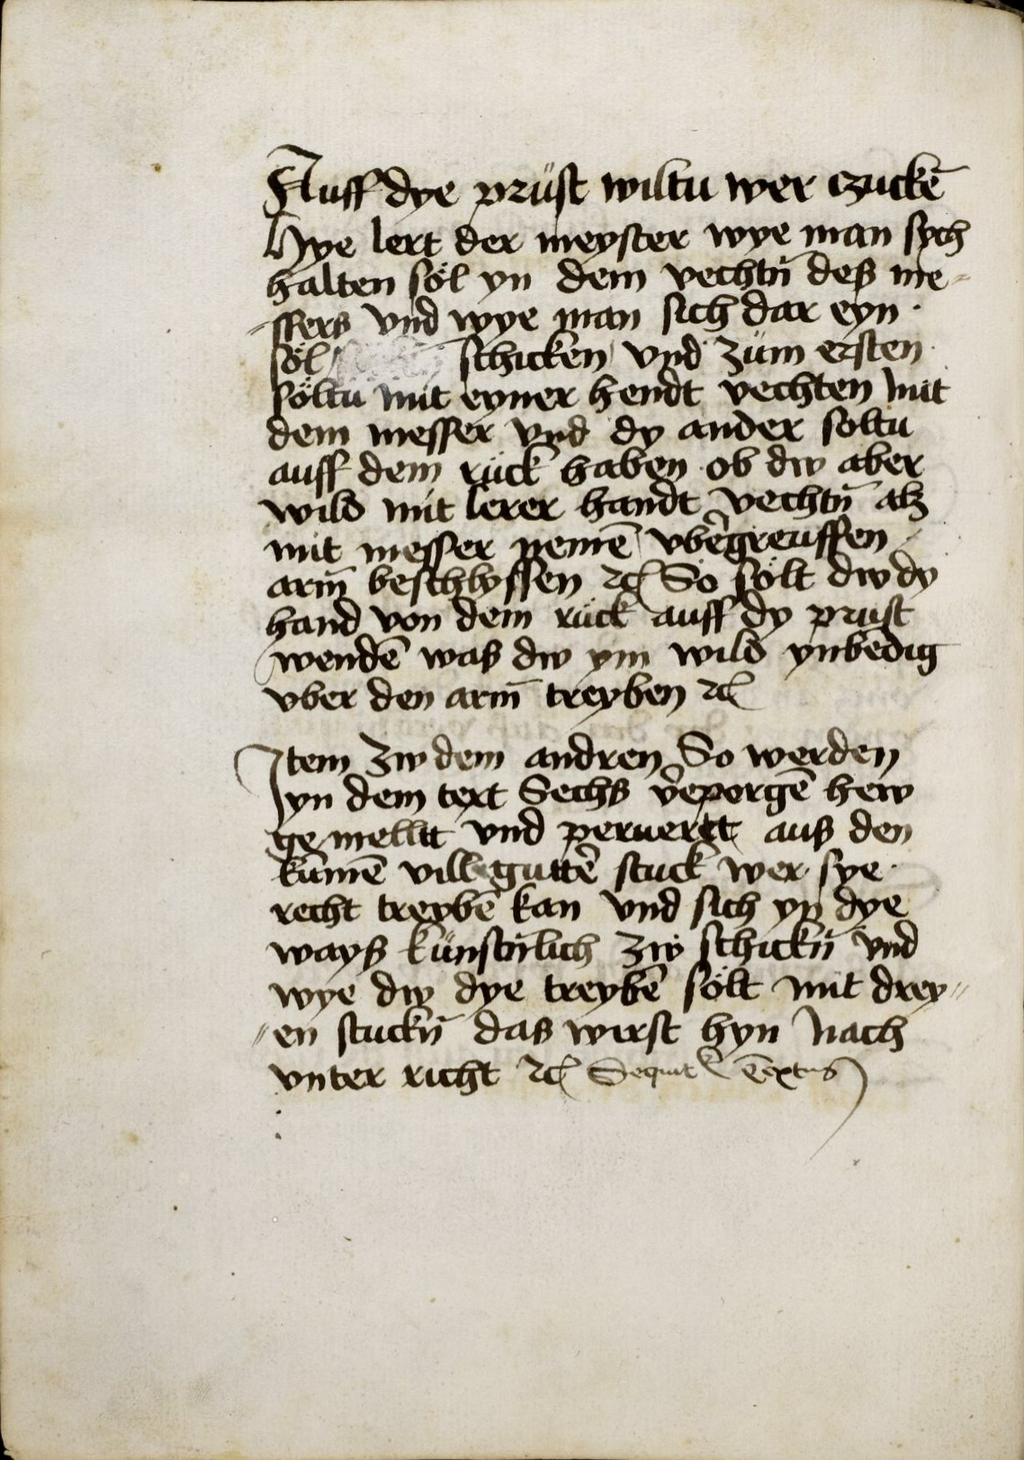 Auff dye prüst wiltu wer czuckē
Hye lert der meyster wye man sych
halten söl yn dem vechtn̄ deß me-
-ssers vnd wye man sich dar eyn·
söl schicken vnd zům ersten
söltu mit eyner hendt vechten mit
dem messer vnd dy ander soltu
auff dem rück haben ob dw aber
wild mit lerer handt vechtn̄ alz
mit messer nemē vbe᷑greuffen
arm̄ beschlyssen ⁊c̄ So sölt dw dy
hand von dem rück auff dy prust
wendē was dw ym wild ynbēdig
vber den arm̄ treyben ⁊c̄
Item zw dem andren So werden
yn dem text Sechs ve᷑porgē hew
ge mellt vnd peruertt aus den
kumē vill gutte᷑ stuck wer sye·
recht treybē kan vnd sich yn dye
ways künstn̄lich zw schickn̄ vnd
wye dw dye treybē sölt mit drey=
=en stuckn̄ das wirst hyn nach
vnter richt ⁊c̄ Sequit᷑ textus